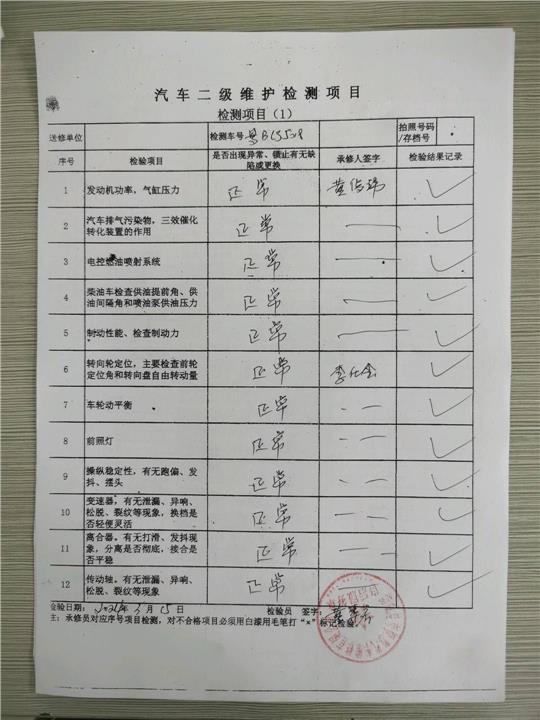 汽车二级维护检测项目
检测项目（1）
送修单位 检测车号 拍照号码/存档号
序号 检验项目 是否出现异常、锁止有无缺陷或更换 承修人签字 检验结果记录
1 发动机功率，气缸压力 正常 ✓
2 汽车排气污染物，三效催化转化装置的作用 正常 — ✓
3 电控燃油喷射系统 正常 — ✓
4 柴油车检查供油提前角、供油间隔角和喷油泵供油压力 正常 — ✓
5 制动性能、检查制动力 正常 — ✓
6 转向轮定位，主要检查前轮定位角和转向盘自由转动量 正常 ✓
7 车轮动平衡 正常 — ✓
8 前照灯 正常 — ✓
9 操纵稳定性，有无跑偏、发抖、摆头 正常 — ✓
10 变速器，有无泄漏、异响、松脱、裂纹等现象，换档是否轻便灵活 正常 — ✓
11 离合器，有无打滑、发抖现象，分离是否彻底，接合是否平稳 正常 — ✓
12 传动轴，有无泄漏、异响、松脱、裂纹等现象 正常 ✓
检验日期： 年 3 月 15 日 检验员 签字：
主：承修员对应序号项目检测，对不合格项目必须用白漆用毛笔打“×”标记检验。